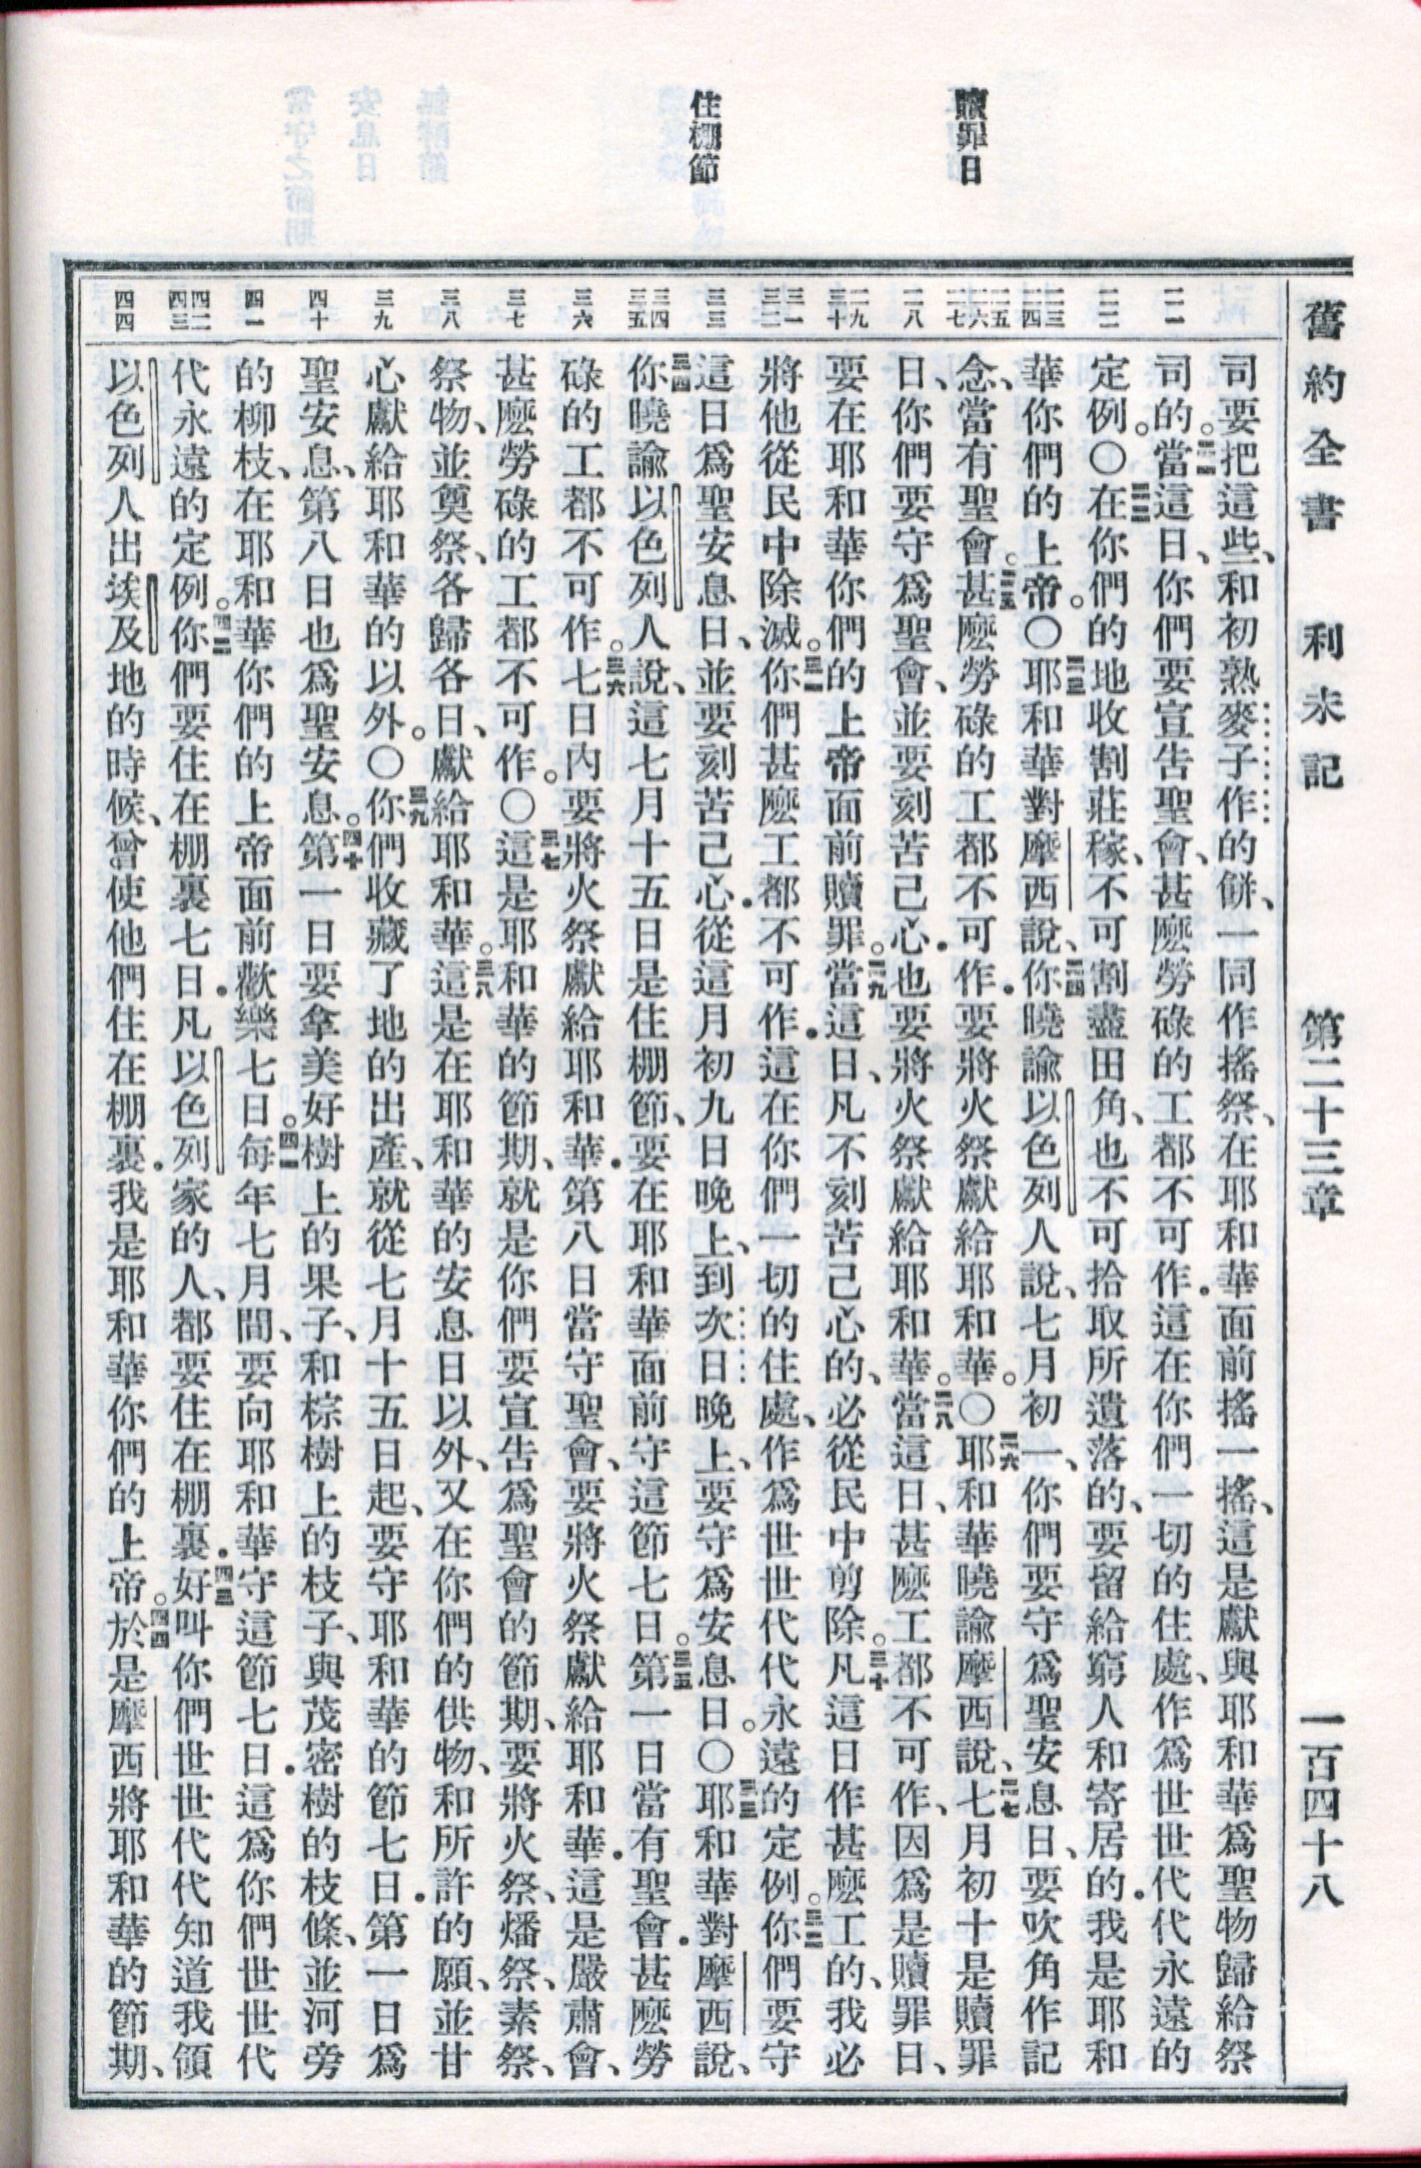 舊約全書　利未記　第二十三章　一百四十八
贖罪日
住棚節
司要把這些、和初熟麥子作的餅、一同作搖祭、在耶和華面前搖一搖、這是獻與耶和華爲聖物歸給祭
司的。二一當這日、你們要宣告聖會、甚麽勞碌的工都不可作．這在你們一切的住處、作爲世世代代永遠的
定例。〇二二在你們的地收割莊稼、不可割盡田角、也不可拾取所遺落的、要留給窮人和寄居的．我是耶和
華你們的上帝。〇二三耶和華對摩西說、二四你曉諭以色列人說、七月初一、你們要守爲聖安息日、要吹角作記
念、當有聖會。二五甚麽勞碌的工都不可作．要將火祭獻給耶和華。〇二六耶和華曉諭摩西說、二七七月初十是贖罪
日、你們要守爲聖會、並要刻苦己心．也要將火祭獻給耶和華。二八當這日、甚麽工都不可作、因爲是贖罪日、
要在耶和華你們的上帝面前贖罪。二九當這日、凡不刻苦己心的、必從民中剪除。三十凡這日作甚麽工的、我必
將他從民中除滅。三一你們甚麽工都不可作．這在你們一切的住處、作爲世世代代永遠的定例。三二你們要守
這日爲聖安息日、並要刻苦己心．從這月初九日晚上、到次日晚上、要守爲安息日。〇三三耶和華對摩西說、
三四你曉諭以色列人說、這七月十五日是住棚節、要在耶和華面前守這節七日。三五第一日當有聖會．甚麽勞
碌的工都不可作。三六七日內要將火祭獻給耶和華．第八日當守聖會、要將火祭獻給耶和華．這是嚴肅會、
甚麽勞碌的工都不可作。〇三七這是耶和華的節期、就是你們要宣告爲聖會的節期、要將火祭、燔祭、素祭、
祭物、並奠祭、各歸各日、獻給耶和華。三八這是在耶和華的安息日以外、又在你們的供物、和所許的願、並甘
心獻給耶和華的以外。〇三九你們收藏了地的出產、就從七月十五日起、要守耶和華的節七日．第一日爲
聖安息、第八日也爲聖安息。四十第一日要拿美好樹上的果子、和棕樹上的枝子、與茂密樹的枝條、並河旁
的柳枝、在耶和華你們的上帝面前歡樂七日。四一每年七月間、要向耶和華守這節七日．這爲你們世世代
代永遠的定例。四二你們要住在棚裏七日．凡以色列家的人、都要住在棚裏．四三好叫你們世世代代知道我領
以色列人出埃及地的時候、曾使他們住在棚裏．我是耶和華你們的上帝。四四於是摩西將耶和華的節期、
二一
二二
二三 二四
二五 二六 二七
二八
二九 三十
三一 三二
三三
三四 三五
三六
三七
三八
三九
四十
四一
四二 四三
四四